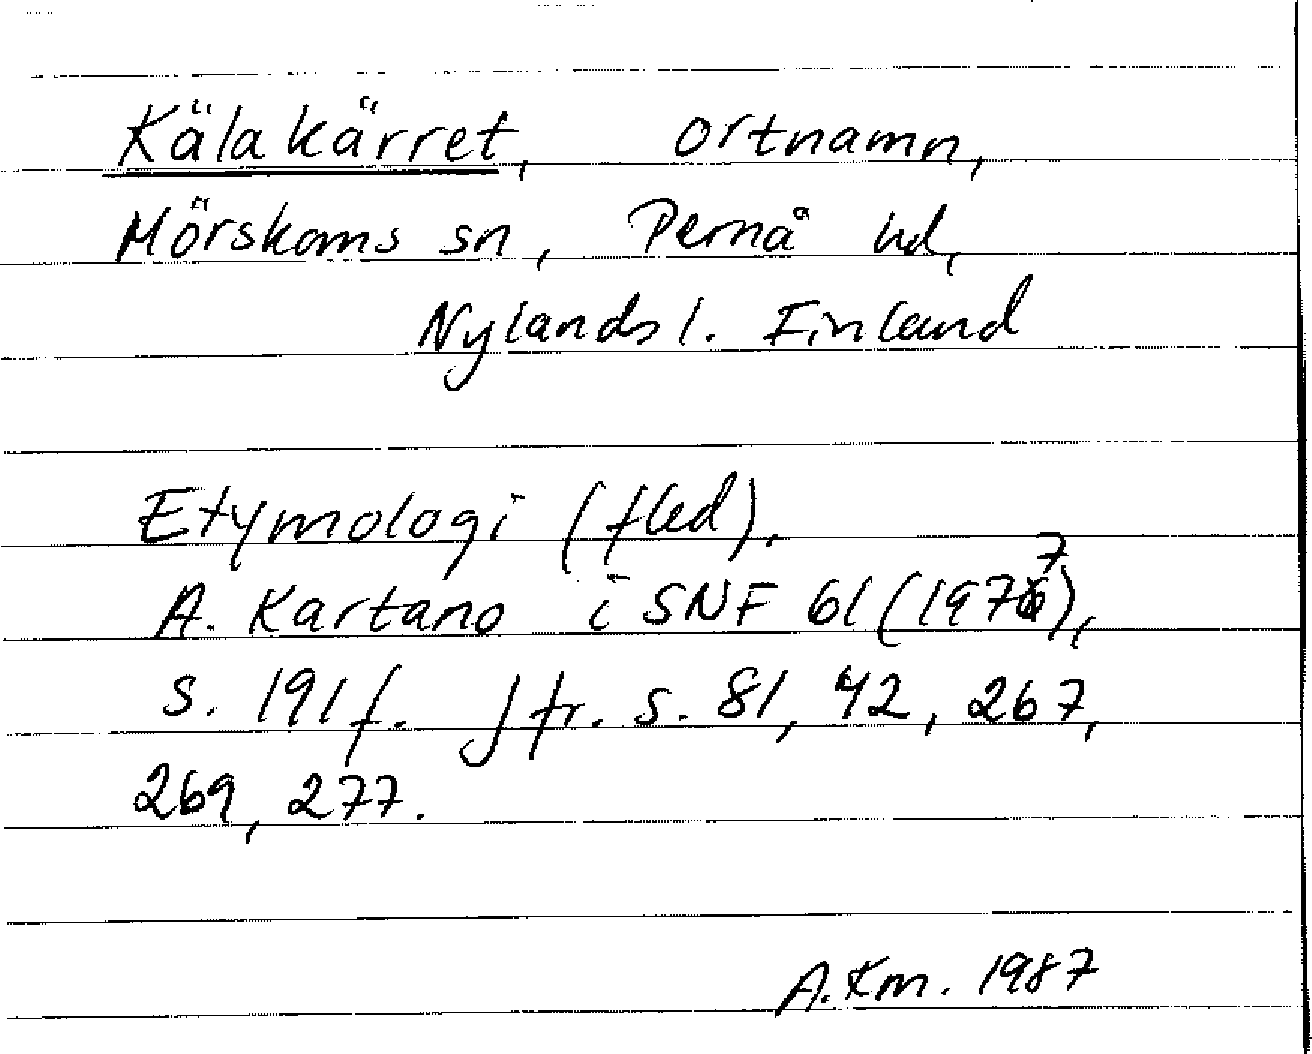 Kälakärret, ortnamn,
Mörskoms sn, Pernå hd,
Nylands l. Finland
Etymologi (fled).
A. Kartano i SNF 61 (1977),
s. 191 f. Jfr. s. 81, 42, 267,
269, 277.
A.Km. 1987